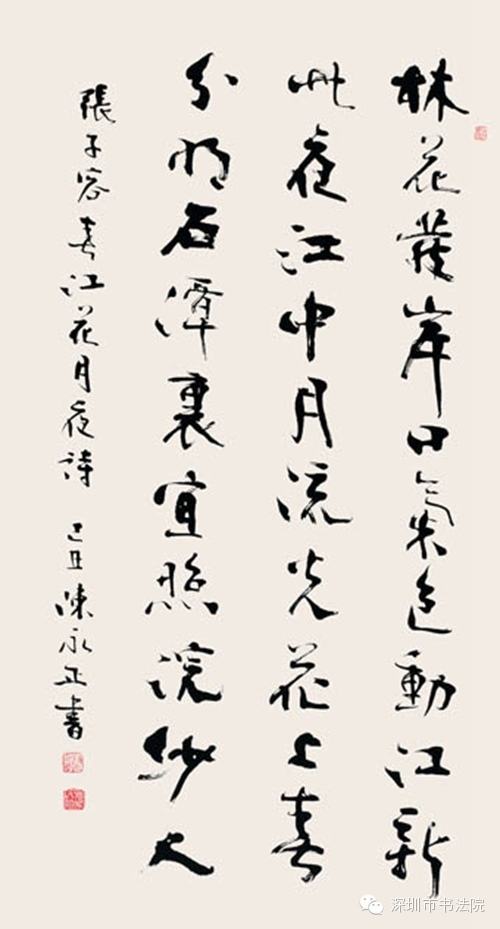 林花發岸口氣色動江新
此夜江中月流光花上春
分明石潭裏宜照浣紗人
張子容春江花月夜詩 己丑陳永正書
深圳市书法院